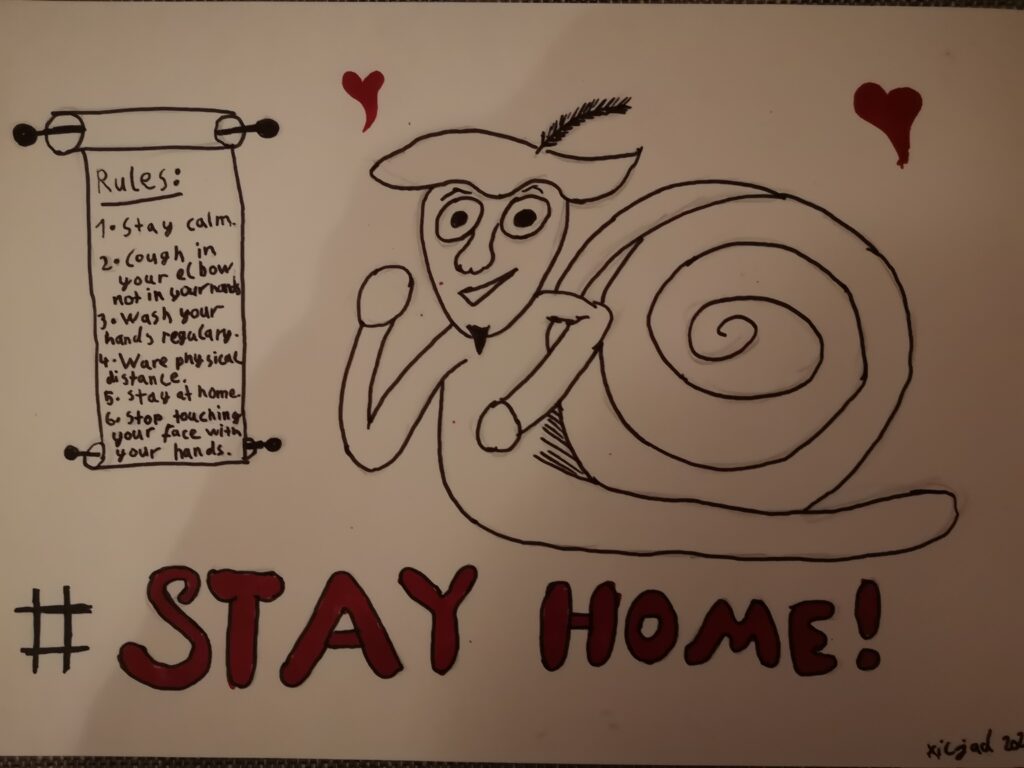 Rules:
1. Stay calm.
2. Cough in
your elbow
not in your hands
3. Wash your
hands regulary.
4. Ware physical
distance.
5. stay at home
6. Stop touching
your face with
your hands.
# STAY HOME!